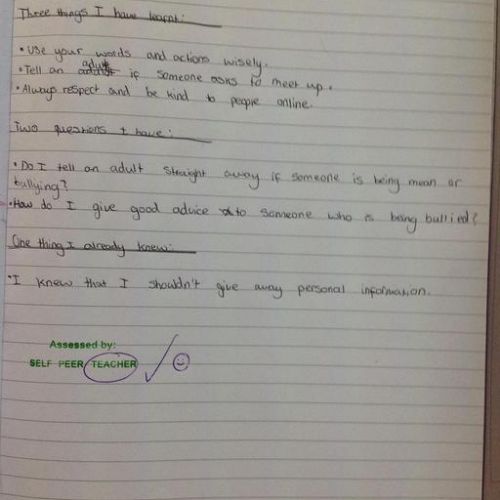 Three things I have learnt:
• Use your words and actions wisely.
• Tell an adult if someone asks to meet up.
• Always respect and be kind to people online.
Two questions I have:
• Do I tell an adult straight away if someone is being mean or
bullying?
• How do I give good advice to someone who is being bullied?
One thing I already knew:
• I knew that I shouldn't give away personal information.
Assessed by:
SELF PEER TEACHER